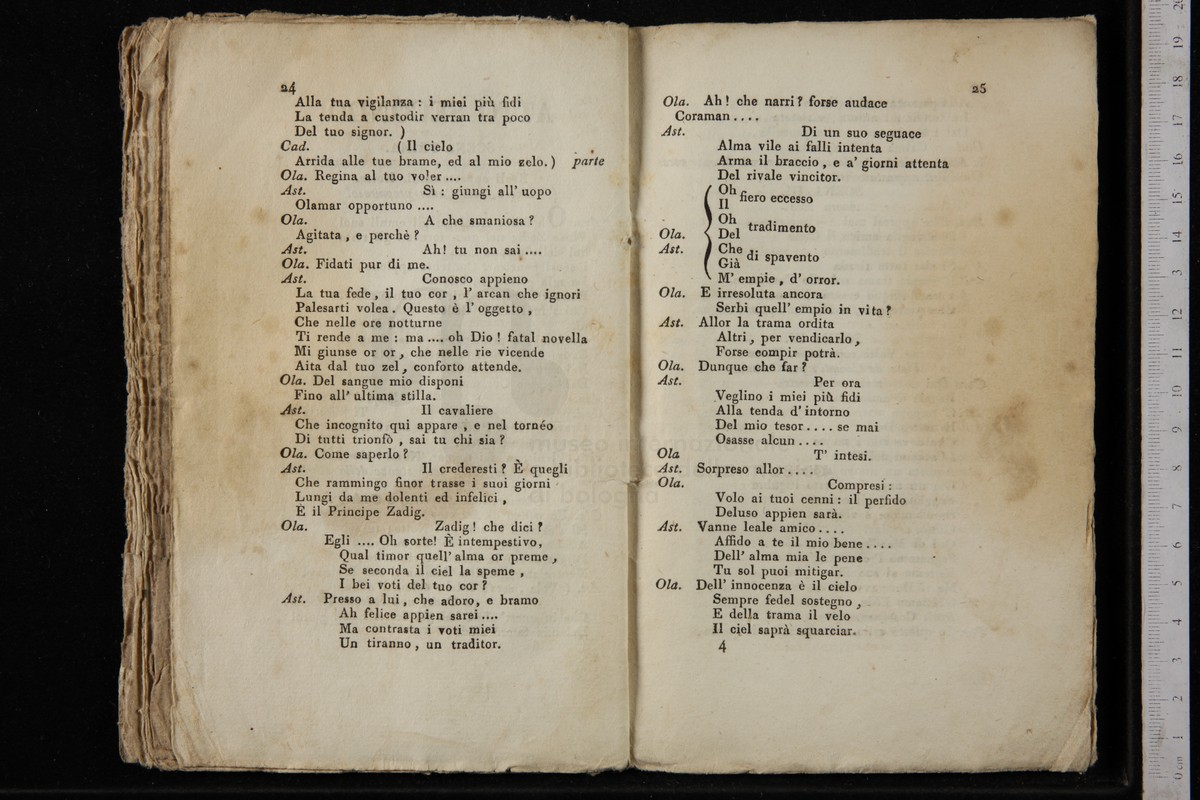 24
Alla tua vigilanza : i miei più fidi
La tenda a custodir verran tra poco
Del tuo signor. )
Cad. ( Il cielo
Arrida alle tue brame, ed al mio zelo. ) parte
Ola. Regina al tuo voler ....
Ast. Sì : giungi all' uopo
Olamar opportuno ....
Ola. A che smaniosa ?
Agitata , e perchè ?
Ast. Ah! tu non sai ....
Ola. Fidati pur di me.
Ast. Conosco appieno
La tua fede , il tuo cor , l' arcan che ignori
Palesarti volea . Questo è l' oggetto ,
Che nelle ore notturne
Ti rende a me : ma .... oh Dio ! fatal novella
Mi giunse or or , che nelle rie vicende
Aita dal tuo zel , conforto attende.
Ola. Del sangue mio disponi
Fino all' ultima stilla.
Ast. Il cavaliere
Che incognito qui appare , e nel tornéo
Di tutti trionfò , sai tu chi sia ?
Ola. Come saperlo ?
Ast. Il crederesti ? È quegli
Che rammingo finor trasse i suoi giorni
Lungi da me dolenti ed infelici ,
E il Principe Zadig.
Ola. Zadig ! che dici ?
Egli .... Oh sorte! È intempestivo,
Qual timor quell' alma or preme ,
Se seconda il ciel la speme ,
I bei voti del tuo cor ?
Ast. Presso a lui , che adoro, e bramo
Ah felice appien sarei ....
Ma contrasta i voti miei
Un tiranno , un traditor.
25
Ola. Ah ! che narri ? forse audace
Coraman ....
Ast. Di un suo seguace
Alma vile ai falli intenta
Arma il braccio , e a' giorni attenta
Del rivale vincitor.
Oh
Il fiero eccesso
Oh
Ola. Del tradimento
Ast. Che
Già di spavento
M' empie , d' orror.
Ola. E irresoluta ancora
Serbi quell' empio in vita ?
Ast. Allor la trama ordita
Altri , per vendicarlo ,
Forse compir potrà.
Ola. Dunque che far ?
Ast. Per ora
Veglino i miei più fidi
Alla tenda d' intorno
Del mio tesor .... se mai
Osasse alcun ....
Ola T' intesi.
Ast. Sorpreso allor ....
Ola. Compresi :
Volo ai tuoi cenni : il perfido
Deluso appien sarà.
Ast. Vanne leale amico ....
Affido a te il mio bene ....
Dell' alma mia le pene
Tu sol puoi mitigar.
Ola. Dell' innocenza è il cielo
Sempre fedel sostegno ,
E della trama il velo
Il ciel saprà squarciar.
4